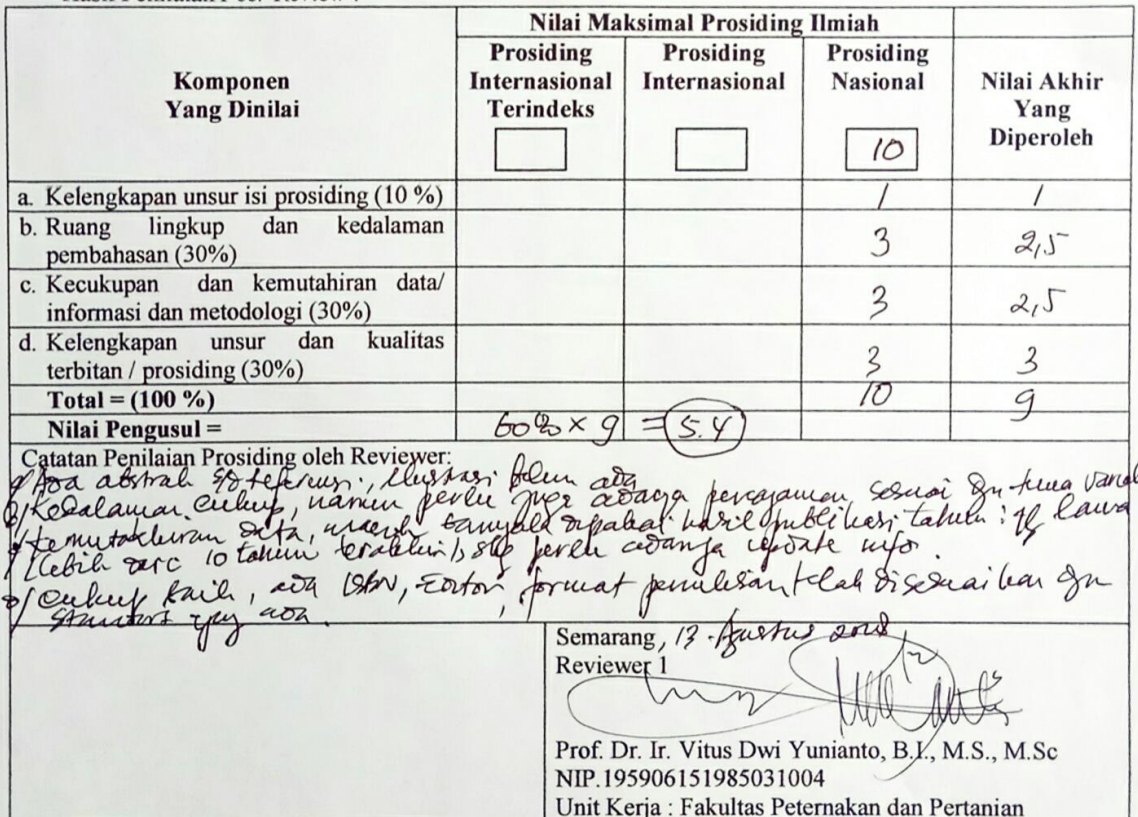 Nilai Maksimal Prosiding Ilmiah
Komponen
Yang Dinilai
Prosiding
Internasional
Terindeks
Prosiding
Internasional
Prosiding
Nasional
10
Nilai Akhir
Yang
Diperoleh
a. Kelengkapan unsur isi prosiding (10 %) 1 1
b. Ruang lingkup dan kedalaman
pembahasan (30%) 3 2,5
c. Kecukupan dan kemutahiran data/
informasi dan metodologi (30%) 3 2,5
d. Kelengkapan unsur dan kualitas
terbitan / prosiding (30%) 3 3
Total = (100 %) 10 9
Nilai Pengusul = 60% × 9 = 5.4
Catatan Penilaian Prosiding oleh Reviewer:
Ada abstrak referensi, ilustrasi belum ada
Kedalaman cukup, namun perlu juga adanya sesuai
data, banyak dipakai hasil publikasi tahun
lebih 10 tahun terakhir perlu adanya update info.
cukup baik, ada ISBN, Editor, format penulisan telah disesuaikan
yg ada.
Semarang, 13 Agustus 2018
Reviewer 1
Prof. Dr. Ir. Vitus Dwi Yunianto, B.I., M.S., M.Sc
NIP.195906151985031004
Unit Kerja : Fakultas Peternakan dan Pertanian